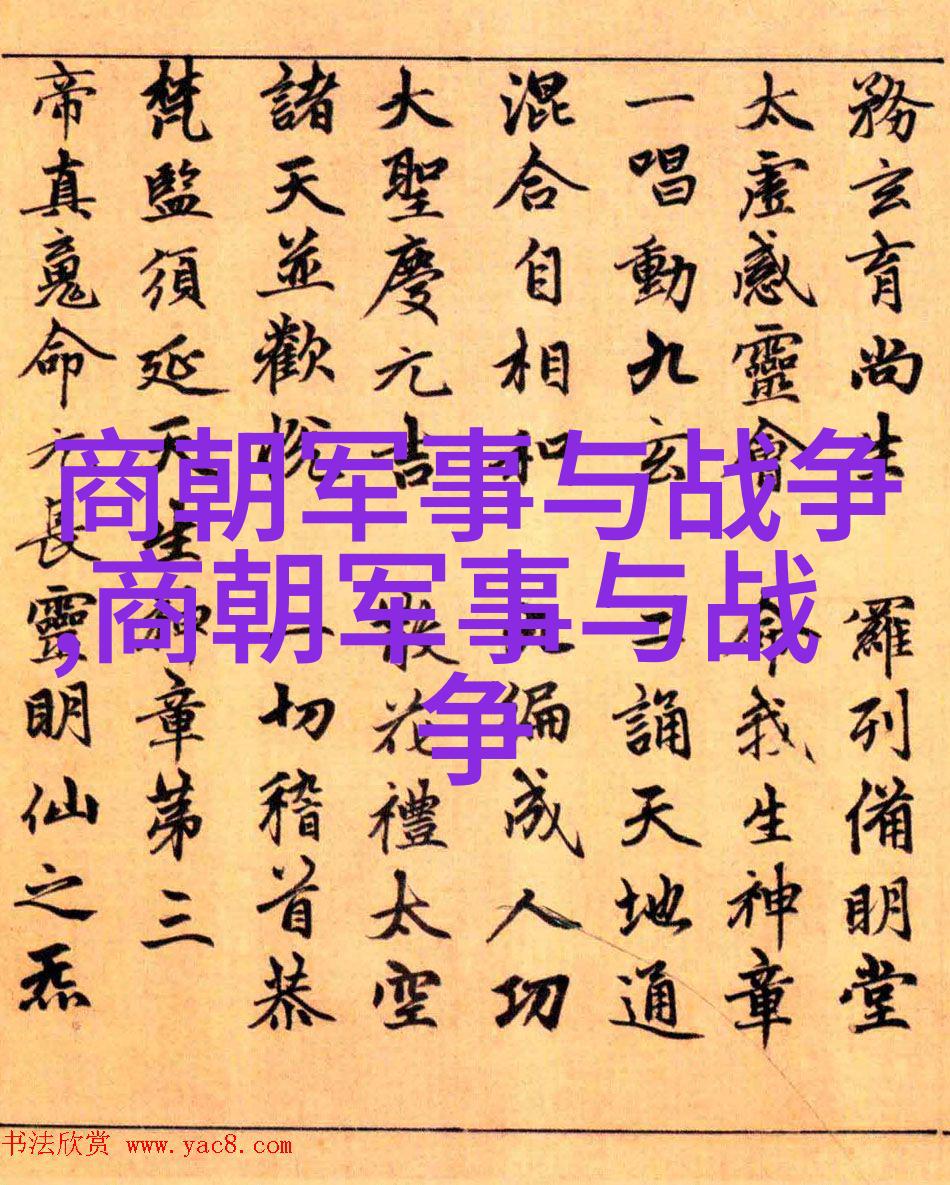 務玄育尚生 羅列備明堂
太虛感靈會 命我生神章
一唱動九玄 二誦天地通
混合自相和 編成人功
大聖慶元吉 散花禮太空
諸天並歡悅 一切稽首恭
梵監須延天生神章第三
帝真命元長靈明仙之炁
商朝军事与战争
,商朝军事与战
争
书法欣赏 www.yac8.com